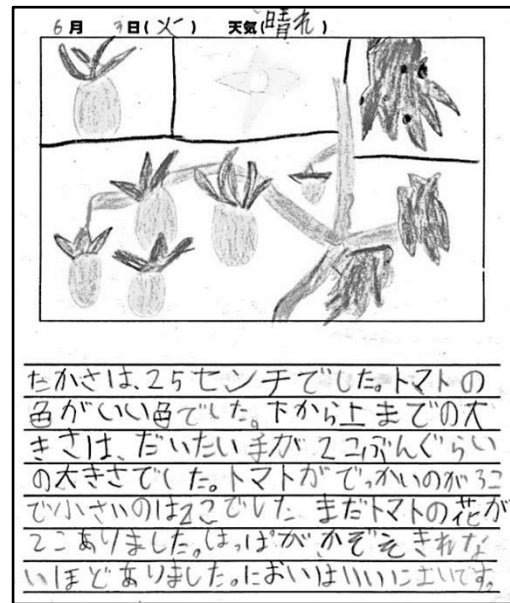 6月 3日(火) 天気(晴れ)
たかさは、25センチでした。トマトの
色がいい色でした。下から上までの大
きさは、だいたい手が2こぶんぐらい
の大きさでした。トマトがでっかいのが3こ
で小さいのは2こでした まだトマトの花が
2こありました。はっぱがかぞえきれな
いほどありました。においはいいにおいです。